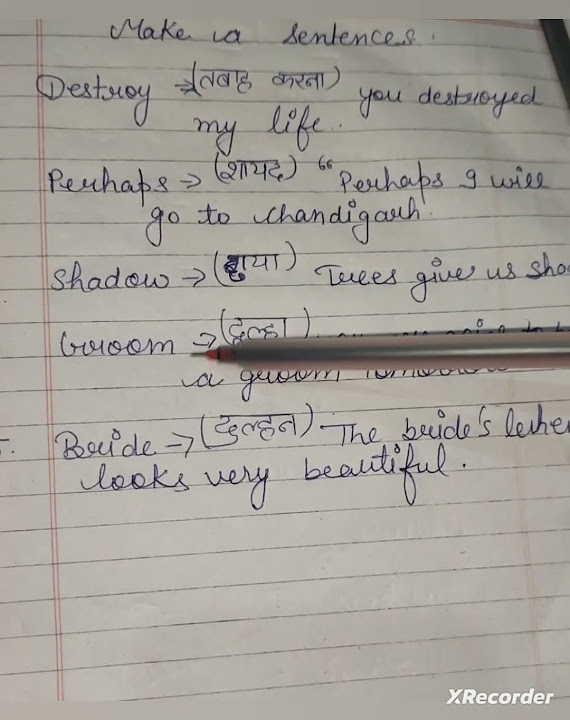 Make a sentences.
Destroy → (तबाह करना) you destroyed
my life.
Perhaps → (शायद) " Perhaps I will
go to chandigarh.
Shadow → (छाया) Trees give us
Groom → (दुल्हा)
a groom tomorrow
5. Bride → (दुल्हन) The bride's
looks very beautiful.
XRecorder